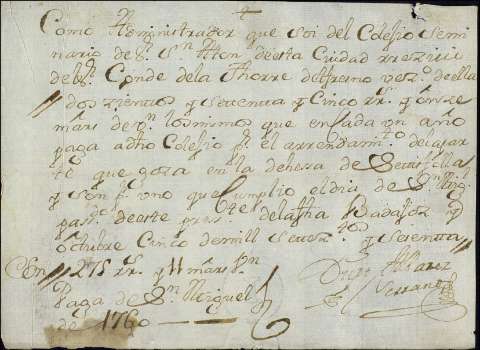 Como Administrador que soi del Colesio Semi
nario de Sr. Sn. Atton de esta Ciudad rrezivi
del Sr. Conde dela Thorre del fresno vezo. de ella
dos zientos y settenta y Cinco rr. y onze
mars. de vn. los mismos que en cada un año
paga a dho Colesio pr. el arrendamto. dela par
te que goza en la dehesa de
y son pr. uno que Cumplio el dia de Sn. Migl.
pasdo. de este preste. dela fha Badajoz y
octubre Cinco de mill setteztos. y sesenta
Son 275 rr. y 11 mars. vn.
Paga de Sn. Miguel
de 1760
Diego Alvarez
Serrano